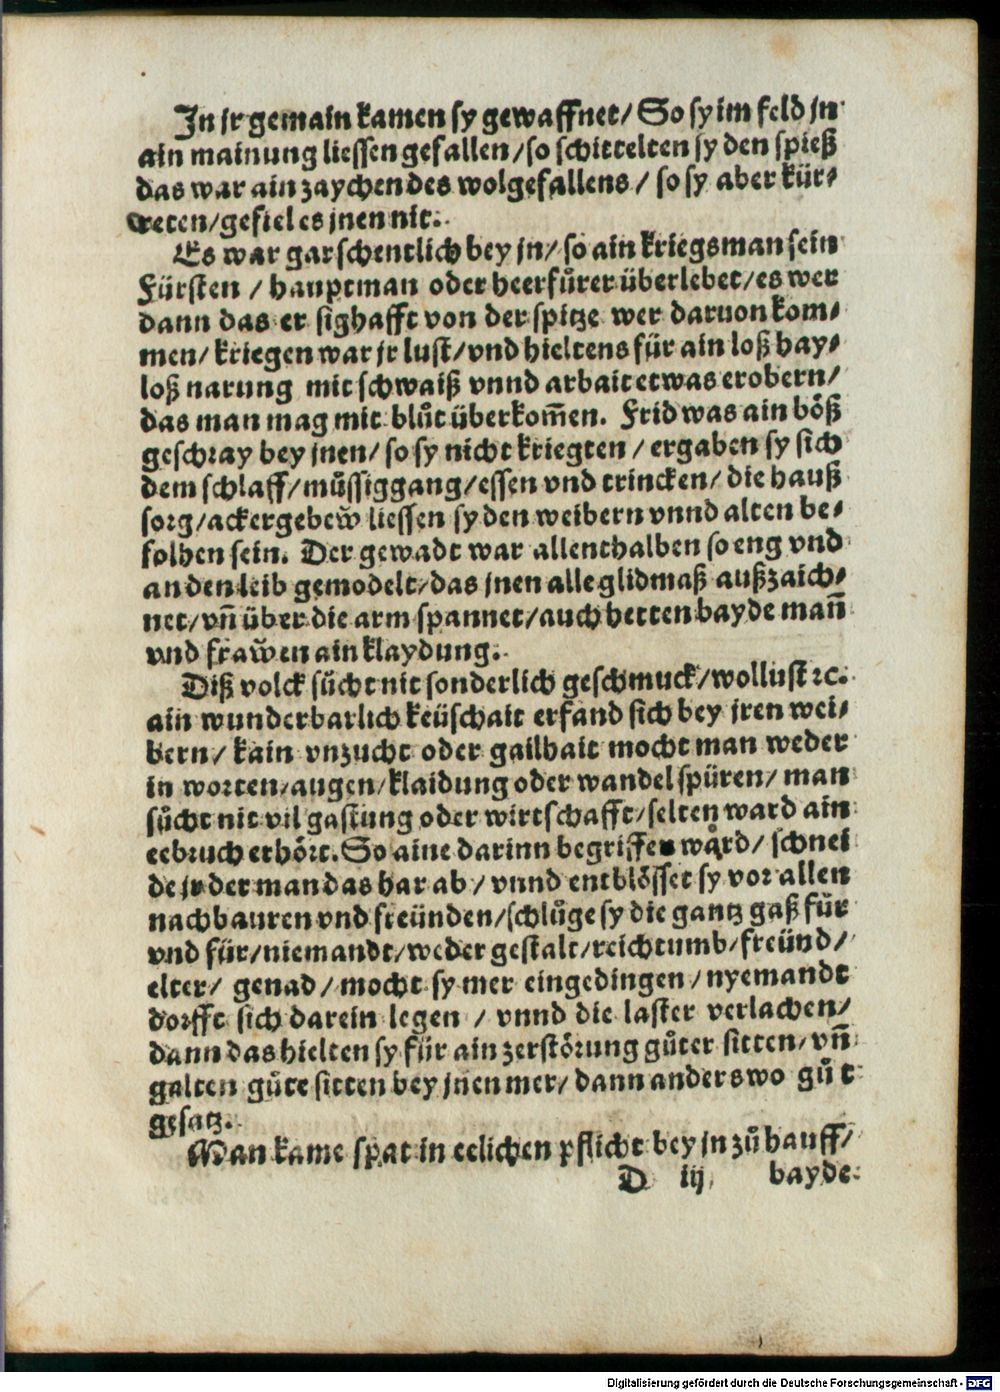 In jr gemain kamen sy gewaffnet/ So sy im feld jn
ain mainung liessen gefallen/ so schittelten sy den spieß
das war ain zaychen des wolgefallens/ so sy aber kür⸗
reten/ gefiel es jnen nit.
Es war gar schentlich bey jn/ so ain kriegsman sein
Fürsten / hauptman oder heerfůrer überlebet/ es wer
dann das er sighafft von der spitze wer daruon kom⸗
men/ kriegen war jr lust/ vnd hieltens für ain loß hay⸗
loß narung mit schwaiß vnnd arbait etwas erobern/
das man mag mit blůt überkom̃en. Frid was ain bößs
geschray bey jnen/ so sy nicht kriegten / ergaben sy sich
dem schlaff/ můssiggang/ essen vnd trincken/ die hauß
sorg/ ackergebew̃ liessen sy den weibern vnnd alten be⸗
folhen sein. Der gewadt war allenthalben so eng vnd
an den leib gemodelt/ das jnen alle glidmaß außzaich⸗
net/ vñ über die arm spannet/ auch hetten bayde mañ
vnd fraw̃en ain klaydung.
Diß volck sůcht nit sonderlich geschmuck/ wollust ꝛc.
ain wunderbarlich keüschait erfand sich bey jren wei⸗
bern/ kain vnzucht oder gailhait mocht man weder
in worten/ augen/ klaidung oder wandel spüren/ man
sůcht nit vil gastung oder wirtschafft/ selten ward ain
eebruch erhört. So aine darinn begriffen wård/ schnei
de jr der man das har ab / vnnd entblösset sy vor allen
nachbauren vnd freünden/ schlůge sy die gantz gaß für
vnd für/ niemandt/ weder gestalt/ reichtumb/ freünd/
elter/ genad / mocht sy mer eingedingen / nyemandt
dorfft sich darein legen / vnnd die laster verlachen/
dann das hielten sy für ain zerstörung gůter sitten/ vñ
galten gůte sitten bey jnen mer/ dann anderswo gůt
gesatz.
Man kame spat in eelichen pflicht bey jn zů hauff/
D iij bayde
Digitalisierung gefördert durch die Deutsche Forschungsgemeinschaft - DFG